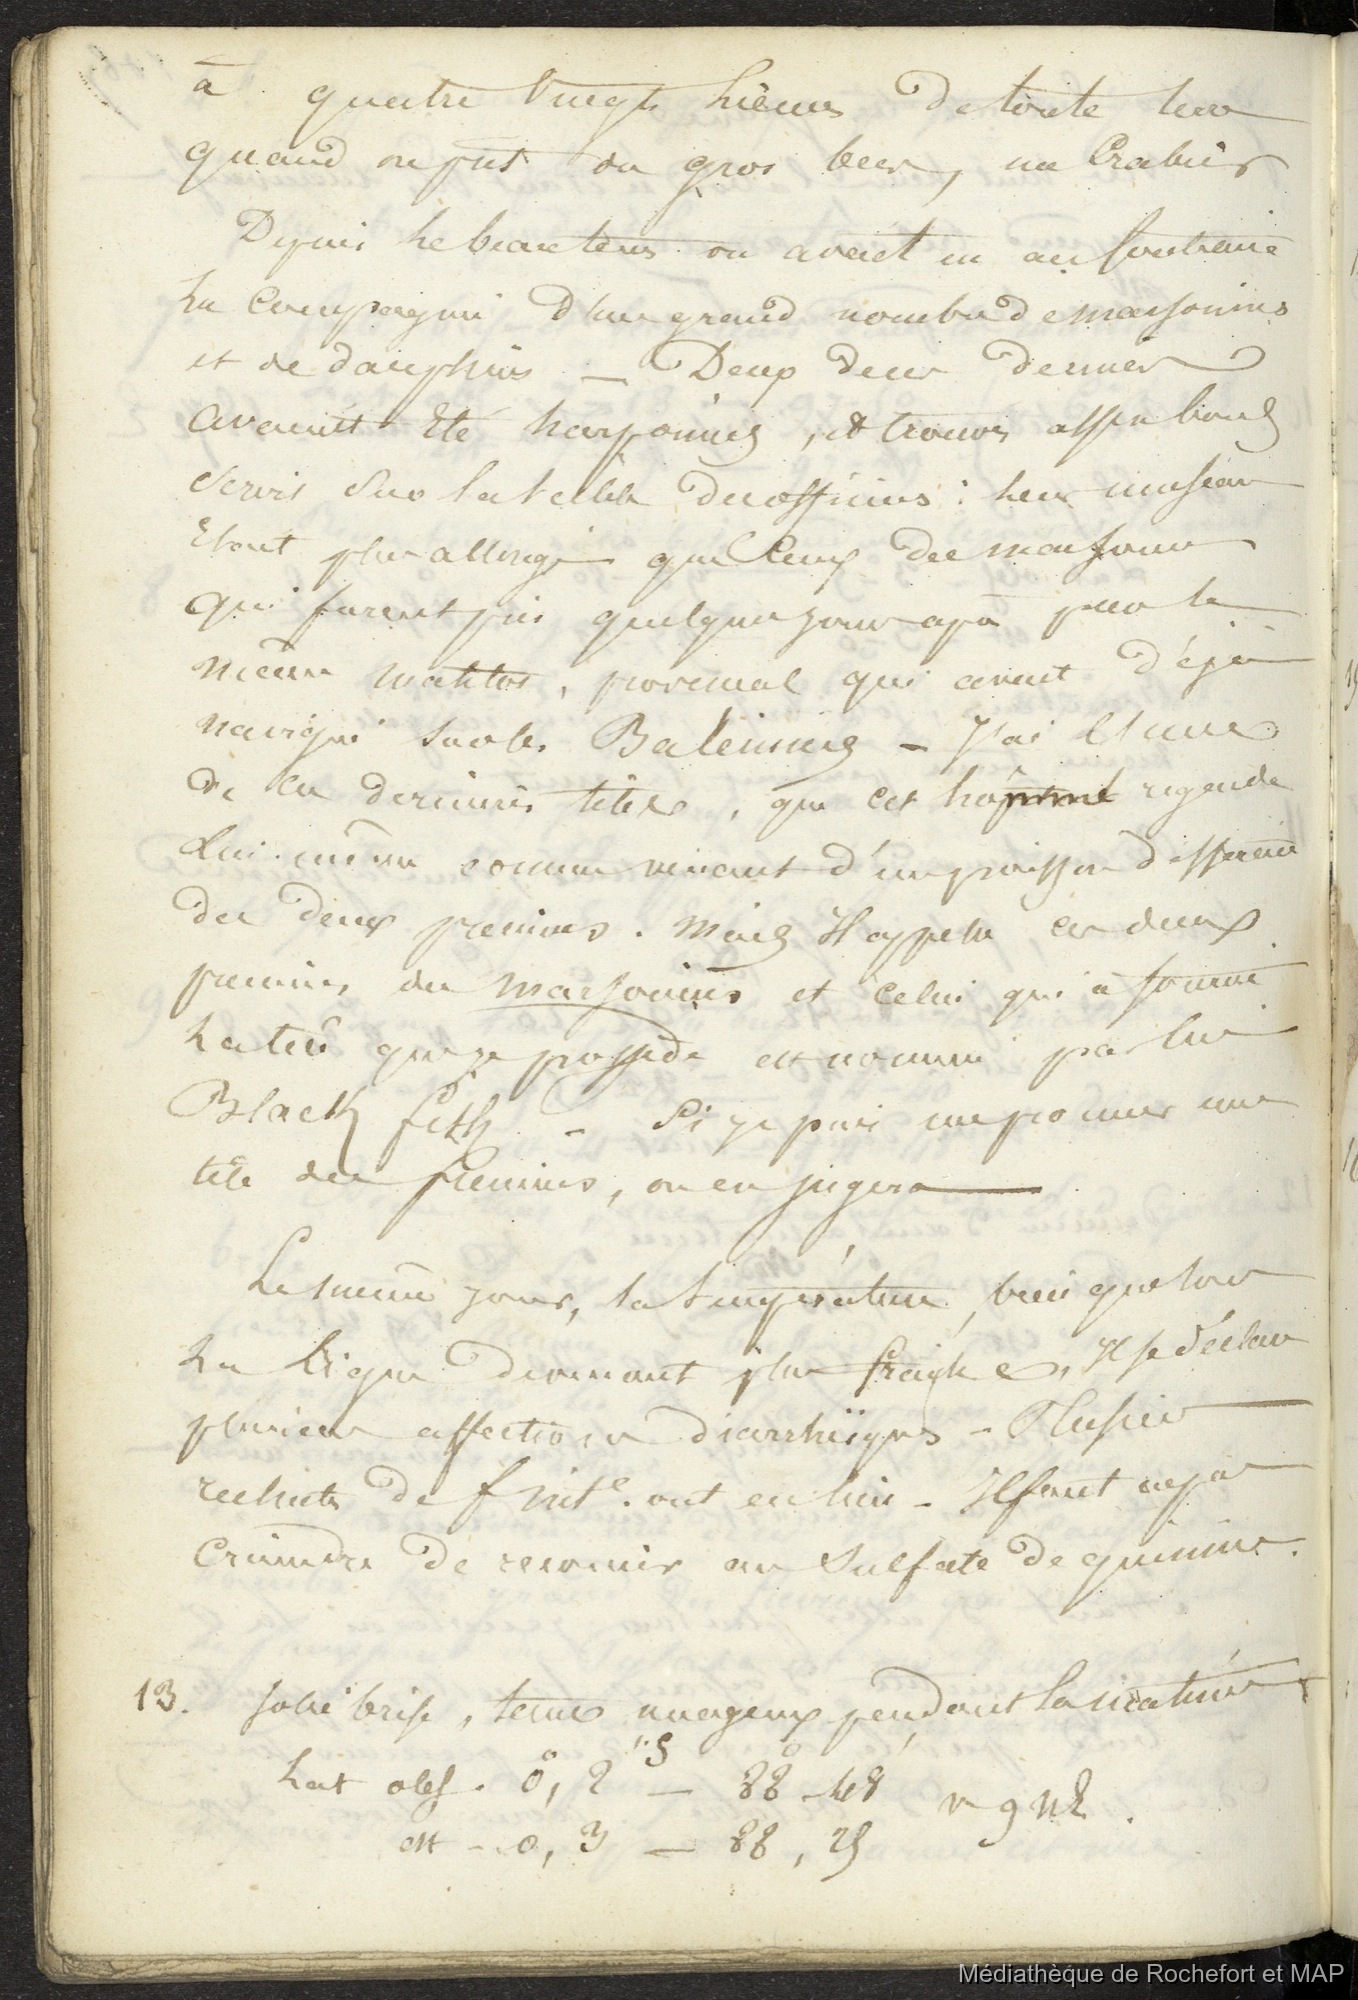 à quatre vingts lieues de toute terre
quand on prit du gros bec, un Crabier
Depuis le beau tems on avait eu au
la Compagnie d'un grand nombre de marsouins
et de dauphins _ Deux de ces derniers
avaient été harponnés, et trouvés assez bons
servis sur la table des officiers : leur museau
étant plus allongé que ceux des marsouins
qui furent pris quelques jours après par le
même matelot, provençal qui avait déjà
navigué sur les Baleiniers - J'ai l'une
de ces dernières têtes, que cet homme regarde
lui-même comme venant d'un poisson différent
des deux premiers. Mais Il appelle ces deux
premiers des marsouins et celui qui a fourni
la tête que je possède est nommé par lui
Black fish - Si je puis me procurer une
tête des premiers, on en jugera
Le même jour, la température, bien que sous
la Ligne devenant plus fraîche, Il se déclare
plusieurs affections diarrhéiques - Plusieurs
rechutes de f. inte. ont eu lieu - Il faut ne pas
craindre de revenir au Sulfate de quinine.
13. Jolie brise, tems nuageux pendant la matinée
Lat obs. 0°, 2' S _ 88°
est - 0, 3 _ 88, 25